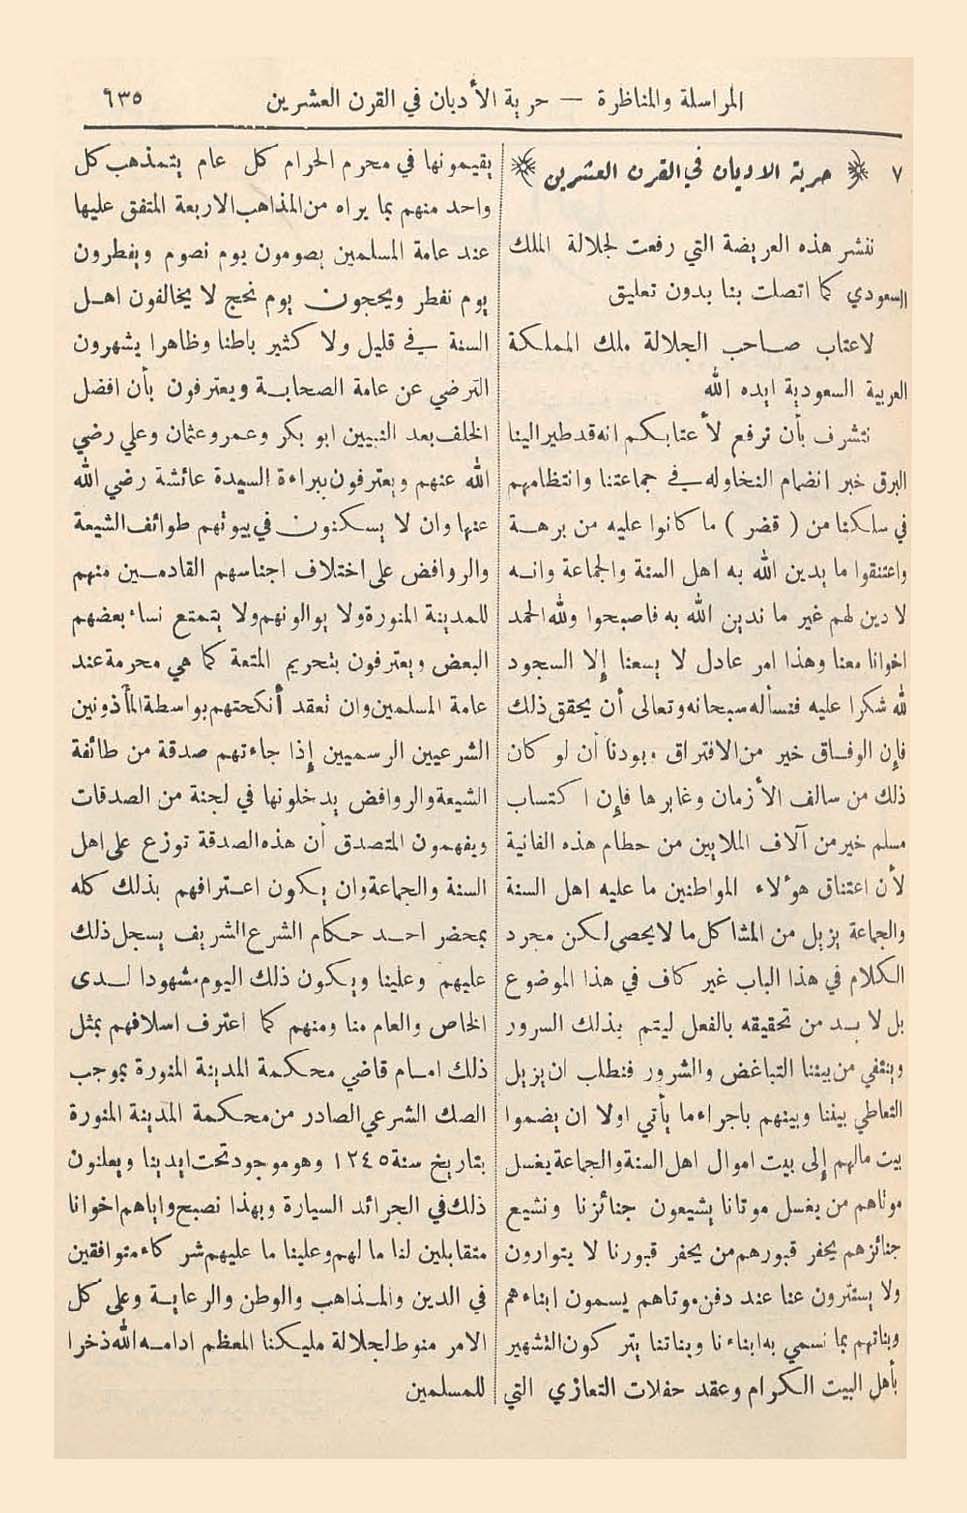 المراسلة والمناظرة — حرية الأديان في القرن العشرين ٦٣٥
٧ حرية الاديان في القرن العشرين
ننشر هذه العريضة التي رفعت لجلالة الملك
السعودي كما اتصلت بنا بدون تعليق
لاعتاب صاحب الجلالة ملك المملكة
العربية السعودية ايده الله
نتشرف بأن نرفع لأعتابكم انه قد طير الينا
البرق خبر انضمام النخاوله في جماعتنا وانتظامهم
في سلكنا من ( قضر ) ما كانوا عليه من برهة
واعتنقوا ما يدين الله به اهل السنة والجماعة وانه
لا دين لهم غير ما ندين الله به فاصبحوا ولله الحمد
اخوانا معنا وهذا امر عادل لا يسعنا إلا السجود
لله شكرا عليه فنسأله سبحانه وتعالى أن يحقق ذلك
فإن الوفاق خير من الافتراق . بودنا أن لو كان
ذلك من سالف الأزمان وغابرها فإن اكتساب
مسلم خير من آلاف الملايين من حطام هذه الفانية
لأن اعتناق هؤلاء المواطنين ما عليه اهل السنة
والجماعة يزيل من المشاكل ما لا يحصى لكن مجرد
الكلام في هذا الباب غير كاف في هذا الموضوع
بل لا بد من تحقيقه بالفعل ليتم بذلك السرور
وينتفي من بيننا التباغض والشرور فنطلب ان يزيل
التعاطي بيننا وبينهم باجراء ما يأتي اولا ان يضموا
بيت مالهم إلى بيت اموال اهل السنة والجماعة يغسل
موتاهم من يغسل موتانا يشيعون جنائزنا ونشيع
جنائزهم يحفر قبورهم من يحفر قبورنا لا يتوارون
ولا يستترون عنا عند دفن موتاهم يسمون ابناءهم
وبناتهم بما نسمي به ابناءنا وبناتنا يتركون التشهير
بأهل البيت الكرام وعقد حفلات التعازي التي
يقيمونها في محرم الحرام كل عام يتمذهب كل
واحد منهم بما يراه من المذاهب الاربعة المتفق عليها
عند عامة المسلمين يصومون يوم نصوم ويفطرون
يوم نفطر ويحجون يوم نحج لا يخالفون اهل
السنة في قليل ولا كثير باطنا وظاهرا يشهرون
الترضي عن عامة الصحابة ويعترفون بأن افضل
الخلف بعد النبيين ابو بكر وعمر وعثمان وعلي رضي
الله عنهم ويعترفون ببراءة السيدة عائشة رضي الله
عنها وان لا يسكنون في بيوتهم طوائف الشيعة
والروافض على اختلاف اجناسهم القادمين منهم
للمدينة المنورة ولا يوالونهم ولا يتمتع نساء بعضهم
البعض ويعترفون بتحريم المتعة كما هي محرمة عند
عامة المسلمين وان تعقد أنكحتهم بواسطة المأذونين
الشرعيين الرسميين إذا جاءتهم صدقة من طائفة
الشيعة والروافض يدخلونها في لجنة من الصدقات
ويفهمون المتصدق أن هذه الصدقة توزع على اهل
السنة والجماعة وان يكون اعترافهم بذلك كله
بمحضر احد حكام الشرع الشريف يسجل ذلك
عليهم وعلينا ويكون ذلك اليوم مشهودا لدى
الخاص والعام منا ومنهم كما اعترف اسلافهم بمثل
ذلك امام قاضي محكمة المدينة المنورة بموجب
الصك الشرعي الصادر من محكمة المدينة المنورة
بتاريخ سنة ١٢٤٥ وهو موجود تحت ايدينا ويعلنون
ذلك في الجرائد السيارة وبهذا نصبح واياهم اخوانا
متقابلين لنا ما لهم وعلينا ما عليهم شركاء متوافقين
في الدين والمذاهب والوطن والرعاية وعلى كل
الامر منوط لجلالة مليكنا المعظم ادامه الله ذخرا
للمسلمين